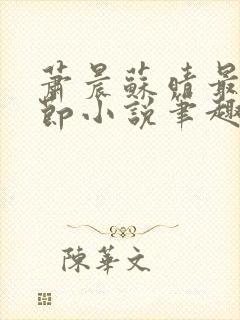 蕭晨蘇晴最
節小說筆趣
陳華文